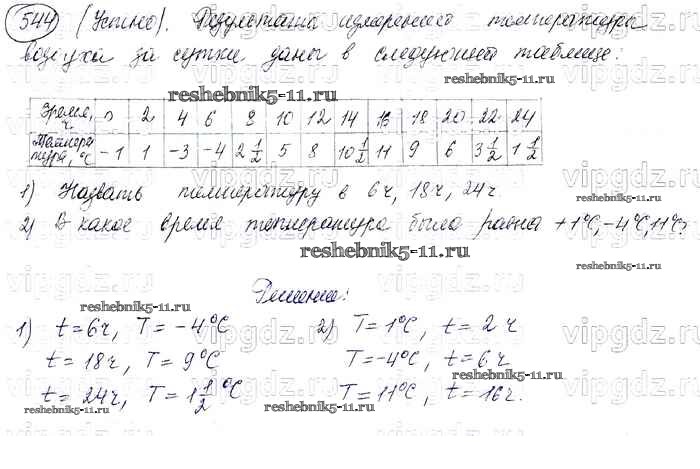 544 (Устно). Результаты измерения температуры
воздуха за сутки даны в следующей таблице:
reshebnik5-11.ru
Время, ч. 0 2 4 6 8 10 12 14 16 18 20 22 24
Температура, °C -1 1 -3 -4 2 1/2 5 8 10 1/2 11 9 6 3 1/2 1 1/2
1) Назвать температуру в 6ч, 18ч, 24ч
2) В какое время температура была равна +1°C, -4°C, 11°C?
reshebnik5-11.ru
reshebnik5-11.ru
Решение:
reshebnik5-11.ru
1) t = 6ч, T = -4°C 2) T = 1°C, t = 2ч
t = 18ч, T = 9°C T = -4°C, t = 6ч
reshebnik5-11.ru
t = 24ч, T = 1 1/2 °C T = 11°C, t = 16ч.
reshebnik5-11.ru
vipgdz.ru